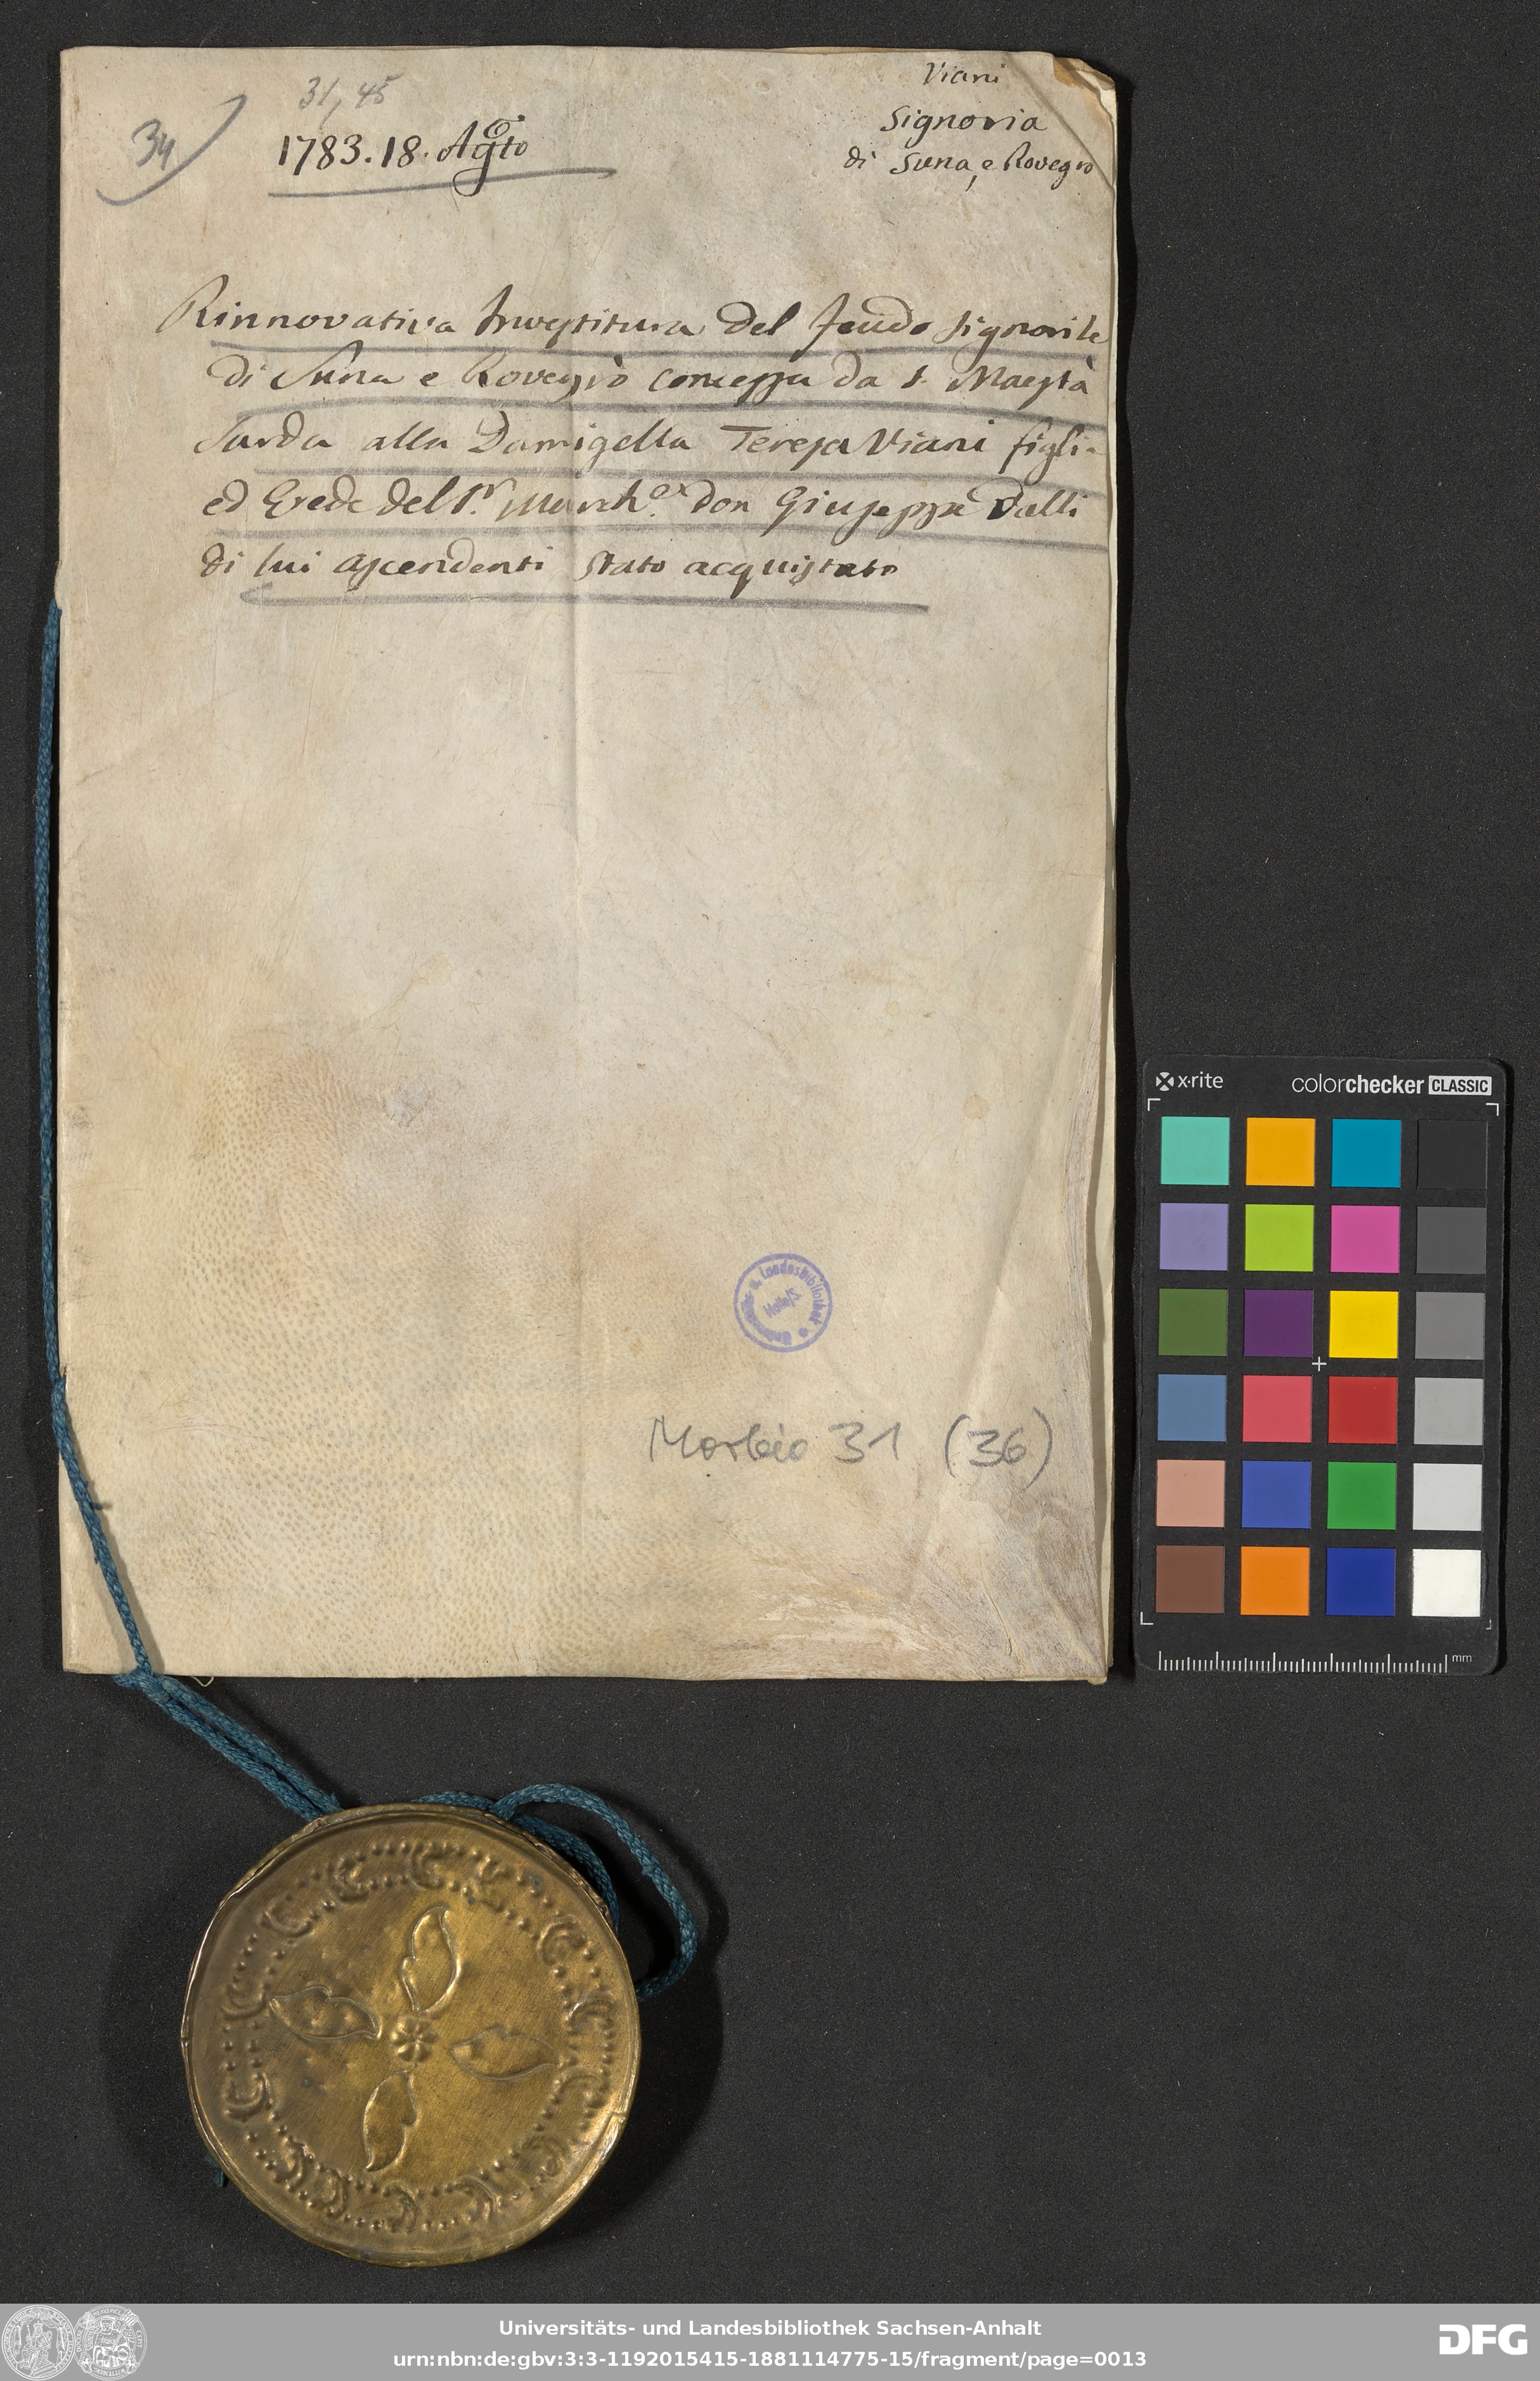 31, 45
34
1783. 18. Agto
Viani
Signoria
di Suna, e Rovegro
Rinnovativa Investitura del feudo signorile
di Suna e Rovegro concessa da S. Maestà
Sarda alla Damigella Teresa Viani figlia
ed Erede del Sr. March.e don Giuseppe dalli
di lui ascendenti stato acquistato
Universitäts- u. Landesbibliothek
Halle/S.
Morbio 31 (36)
x-rite colorchecker CLASSIC
mm
Universitäts- und Landesbibliothek Sachsen-Anhalt
urn:nbn:de:gbv:3:3-1192015415-1881114775-15/fragment/page=0013
DFG